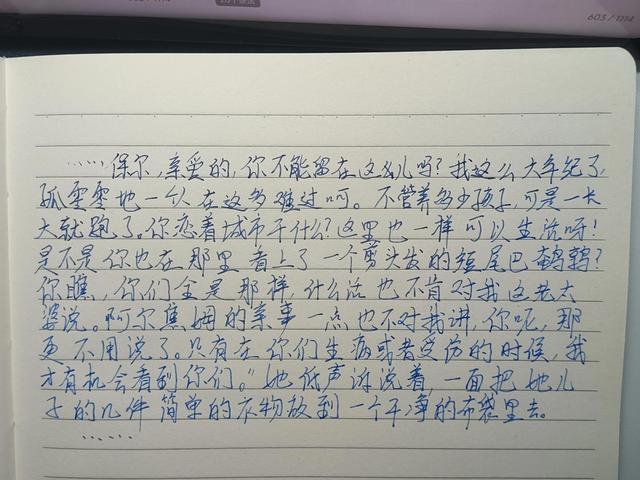 603 / 1114
……保尔,亲爱的,你不能留在这儿吗?我这么大年纪了,
孤零零地一个人在这多难过呵。不管养多少孩子,可是一长
大就跑了。你恋着城市干什么?这里也一样可以生活呀!
是不是你也在那里看上了一个剪头发的短尾巴鹌鹑?
你瞧,你们全是那样,什么话也不肯对我这老太
婆说。阿尔焦姆的亲事一点也不对我讲,你呢,那
更不用说了。只有在你们生病或者受伤的时候,我
才有机会看到你们。”她低声诉说着,一面把她儿
子的几件简单的衣物放到一个干净的布袋里去。
……